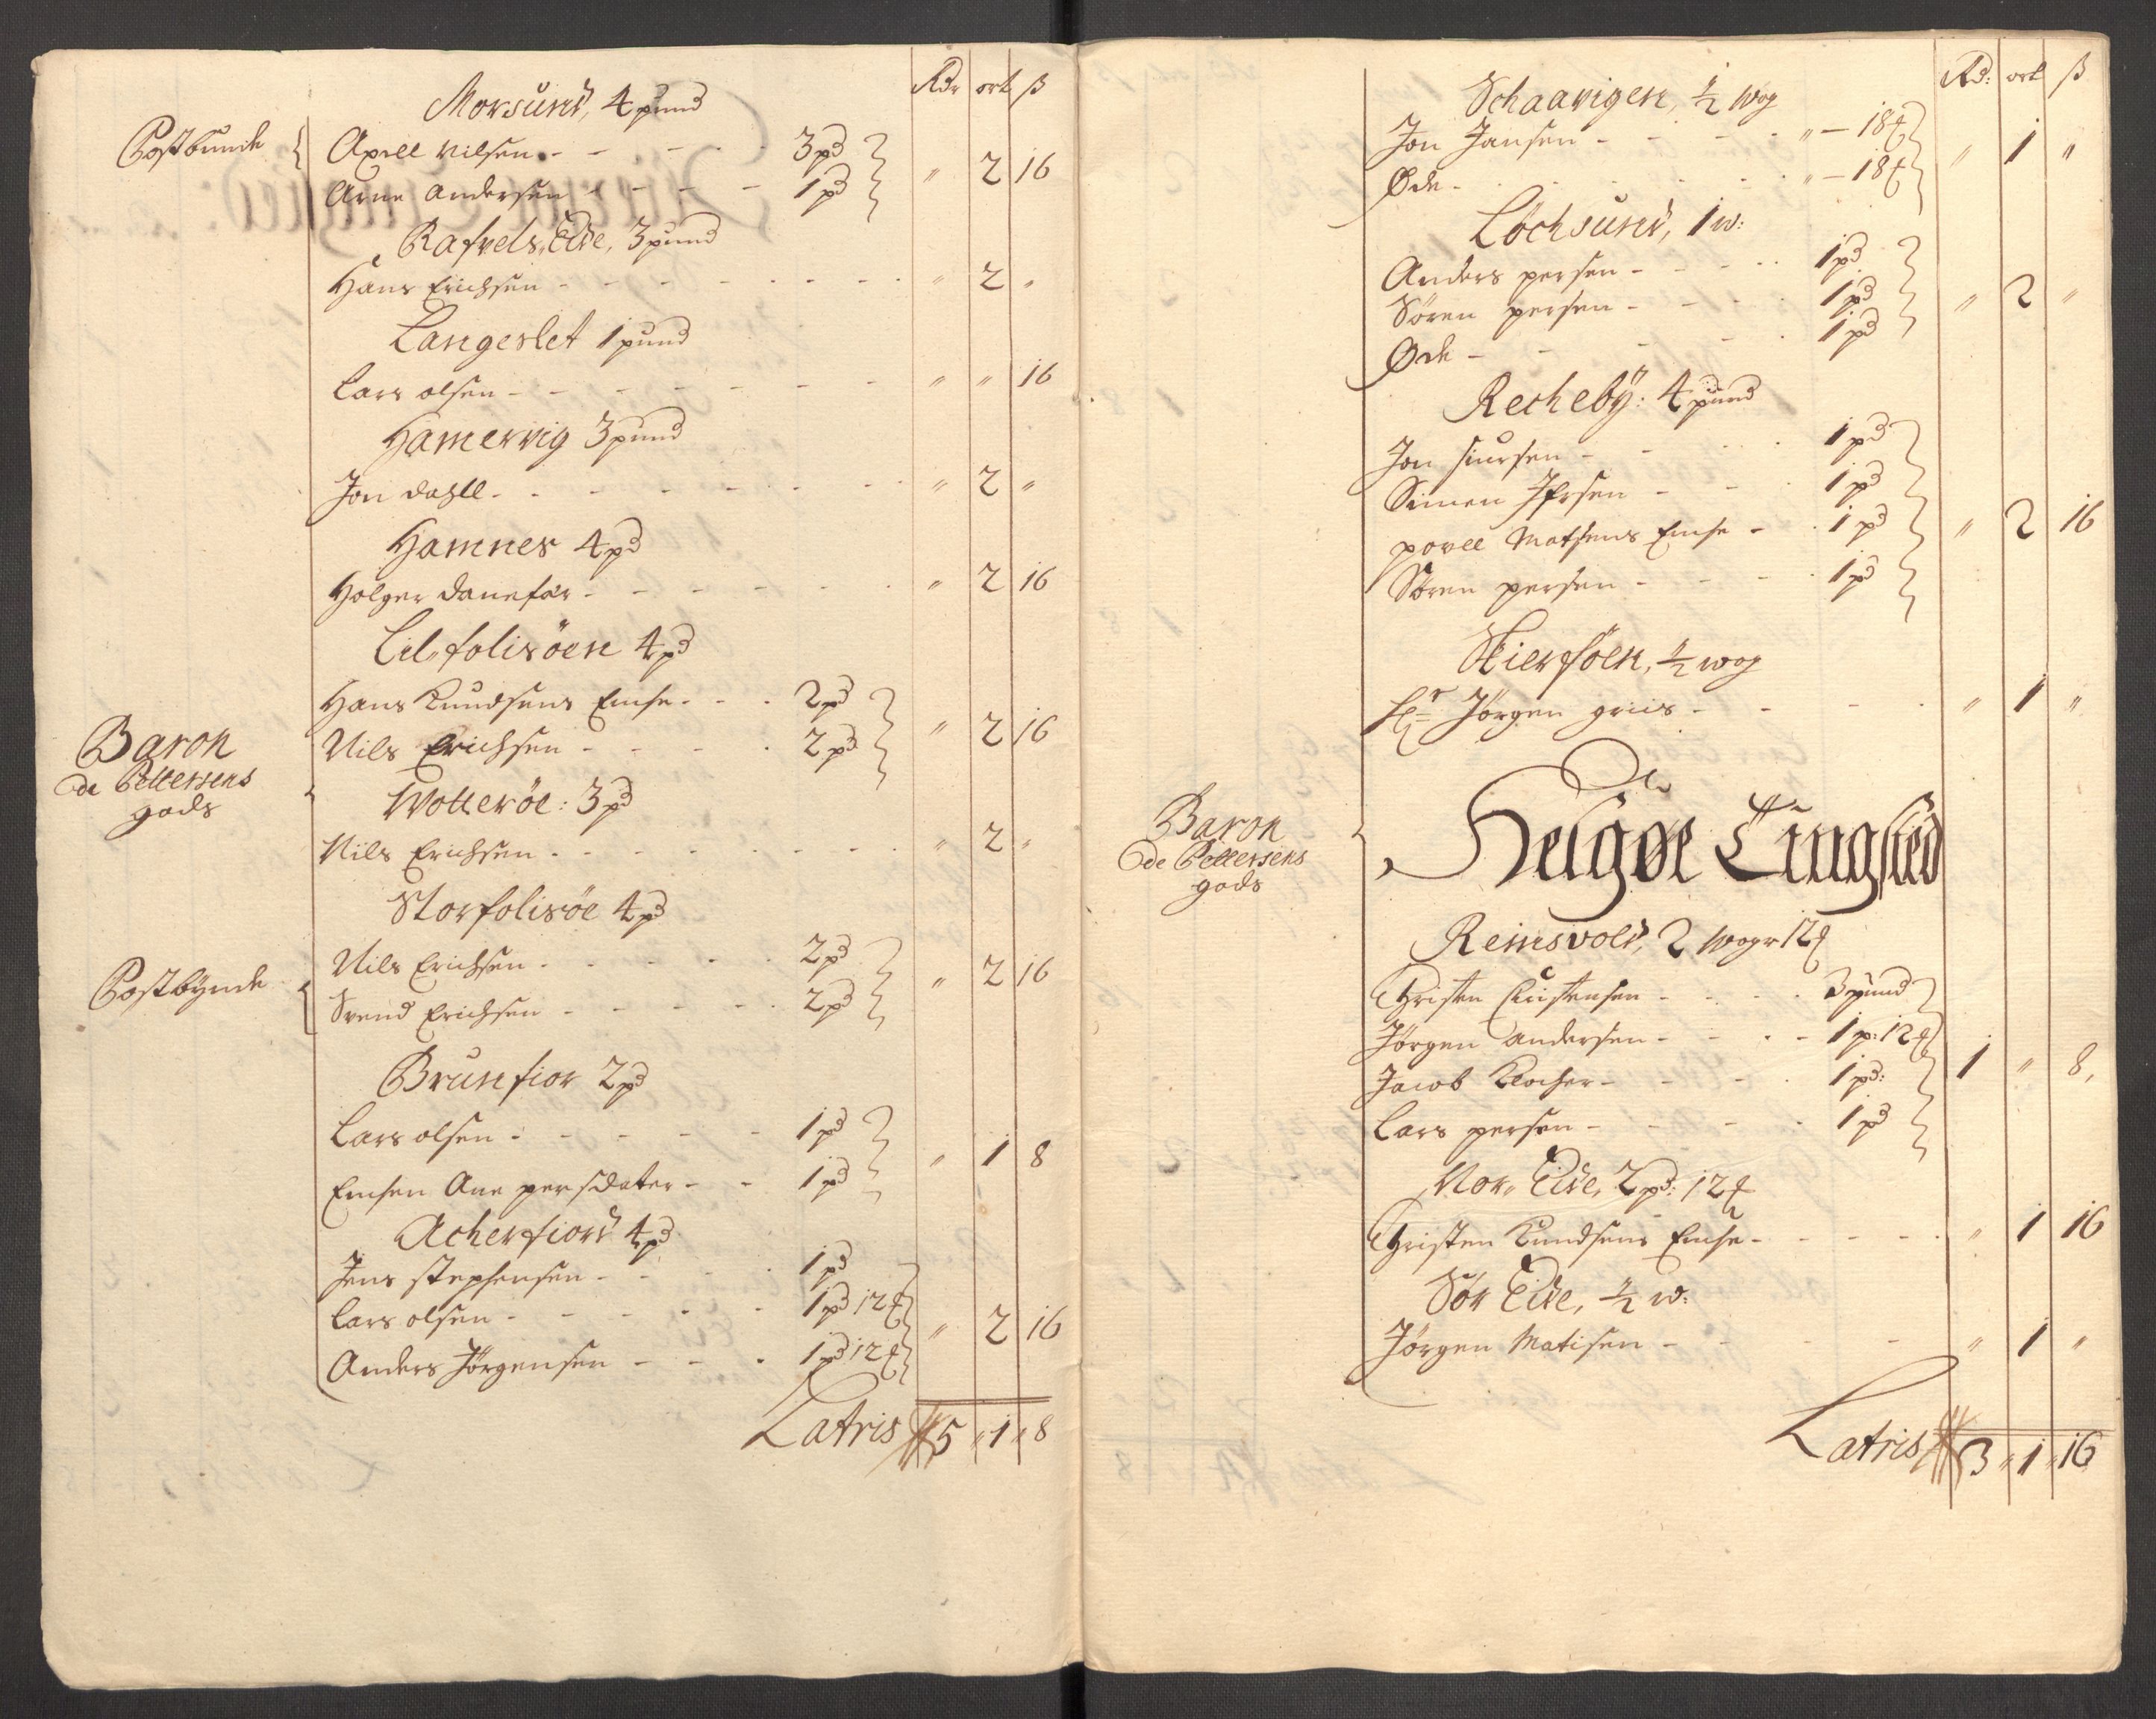 Rdr ort ß
Morsund, 4 pund
Postbunde
Axell Nilsen - - - - 3 pd
Arne Andersen - - - - 1 pd " 2 16
Rafvels Eide, 3 pund
Hans Erichsen - - - - - - " 2 "
Langeslet 1 pund
Lars olsen - - - - - - - " " 16
Hamervig 3 pund
Jon dahll - - - - - - - " 2 "
Hamnes 4 pd
Holger Danefær - - - - - - " 2 16
Lil folisøen 4 pd
Hans Knudsens Encke - - 2 pd
Nils Erichsen - - - - 2 pd " 2 16
Baron
de Pettersens
gods
Wotterøe: 3 pd
Nils Erichsen - - - - - - - " 2 "
Storfolisøe 4 pd
Postbynde
Nils Erichsen - - - - - 2 pd
Svend Erichsen - - - - 2 pd " 2 16
Brunfior 2 pd
Lars olsen - - - - - 1 pd
Encken Ane persdater - - 1 pd " 1 8
Acherfiord 4 pd
Jens stephensen - - - 1 pd
Lars olsen - - - - - 1 pd 12 ℔
Anders Jörgensen - - - 1 pd 12 ℔ " 2 16
Latris 5 " 1 " 8
Rd: ort ß
Schaavigen, ½ wog
Jon Jansen - - - - " - 18 ℔
Øde - - - - - " - 18 ℔ " 1 "
Lochsund, 1 w:
Anders persen - - - - 1 pd
Sören persen - - - - 1 pd
Øde - - - - - 1 pd " 2 "
Recheby: 4 pund
Jon siursen - - - - 1 pd
Simen Ifersen - - - 1 pd
povell Matsens Encke - 1 pd
Sören persen - - - - 1 pd " 2 16
Skiersöen, ½ wog
Hr Jörgen griis - - - - " 1 "
Baron
de Pettersens
gods
Helgøe Tingsted
Reinsvold, 2 woger 12 ℔
Christen Christensen - - - 3 pund
Jörgen andersen - - - - 1 p: 12 ℔
Jacob Klocher - - - - 1 pd:
Lars persen - - - - 1 pd 1 " 8,
Nor Eide, 2 pd: 12 ℔
Christen Knudsens Encke - - - - - " 1 16
Sör Eide, ½ w:
Jörgen Matisen - - - - " 1 "
Latris 3 " 1 " 16